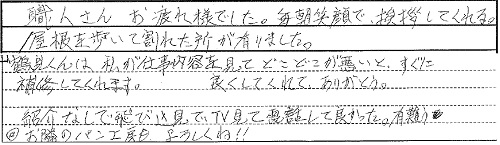 職人さん お疲れ様でした。毎朝笑顔で、挨拶してくれる。
屋根を歩いて割れた所が有りました。
鶴見くんは 私が仕事内容を見て どこどこが悪いと、すぐに
補修してくれます。 良くしてくれて ありがとう。
紹介なしで飛び込みで、TV見て電話して良かった。有難う
@お隣のパン工房も よろしくね!!